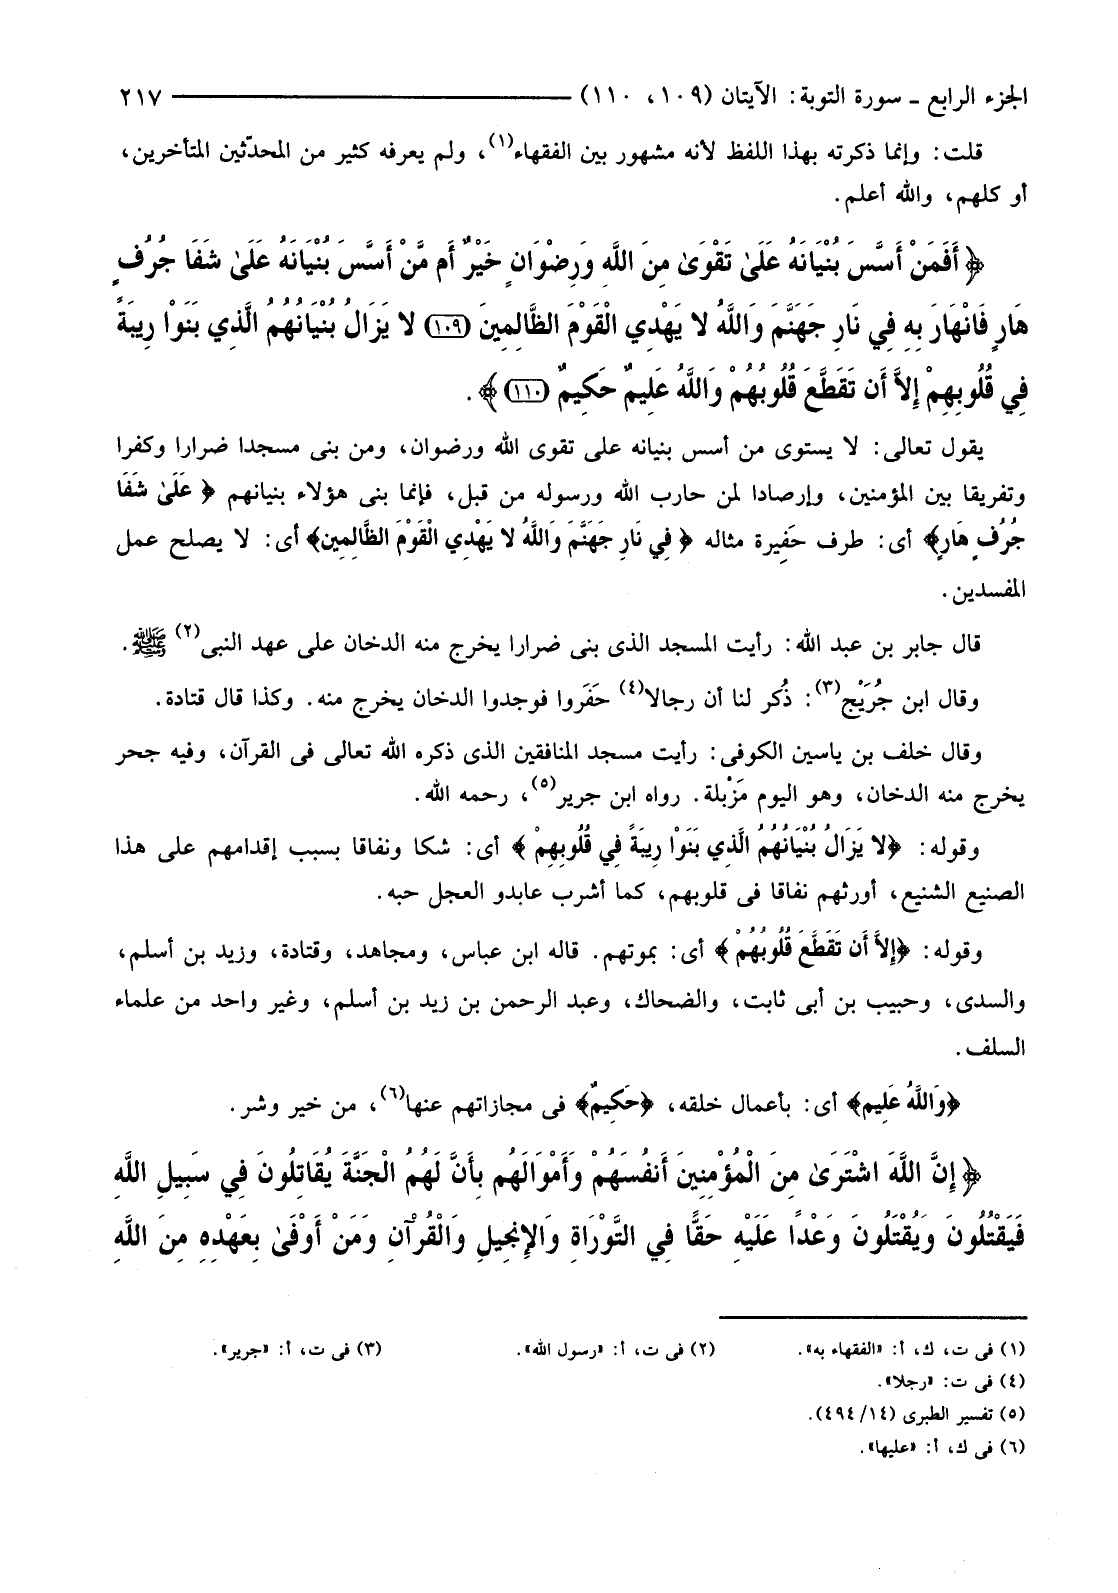 الجزء الرابع ـ سورة التوبة: الآيتان (١٠٩، ١١٠) ــــــــــــــــــــ ٢١٧
قلت: وإنما ذكرته بهذا اللفظ لأنه مشهور بين الفقهاء(١)، ولم يعرفه كثير من المحدّثين المتأخرين،
أو كلهم، والله أعلم.
﴿ أَفَمَنْ أَسَّسَ بُنْيَانَهُ عَلَىٰ تَقْوَىٰ مِنَ اللَّهِ وَرِضْوَانٍ خَيْرٌ أَم مَّنْ أَسَّسَ بُنْيَانَهُ عَلَىٰ شَفَا جُرُفٍ
هَارٍ فَانْهَارَ بِهِ فِي نَارِ جَهَنَّمَ وَاللَّهُ لا يَهْدِي الْقَوْمَ الظَّالِمِينَ (١٠٩) لا يَزَالُ بُنْيَانُهُمُ الَّذِي بَنَوْا رِيبَةً
فِي قُلُوبِهِمْ إِلاَّ أَن تَقَطَّعَ قُلُوبُهُمْ وَاللَّهُ عَلِيمٌ حَكِيمٌ (١١٠) ﴾.
يقول تعالى: لا يستوى من أسس بنيانه على تقوى الله ورضوان، ومن بنى مسجدا ضرارا وكفرا
وتفريقا بين المؤمنين، وإرصادا لمن حارب الله ورسوله من قبل، فإنما بنى هؤلاء بنيانهم ﴿ عَلَىٰ شَفَا
جُرُفٍ هَارٍ﴾ أى: طرف حَفِيرة مثاله ﴿ فِي نَارِ جَهَنَّمَ وَاللَّهُ لا يَهْدِي الْقَوْمَ الظَّالِمِين﴾ أى: لا يصلح عمل
المفسدين.
قال جابر بن عبد الله: رأيت المسجد الذى بنى ضرارا يخرج منه الدخان على عهد النبى(٢) ﷺ.
وقال ابن جُرَيْج(٣): ذُكر لنا أن رجالا(٤) حَفَروا فوجدوا الدخان يخرج منه. وكذا قال قتادة.
وقال خلف بن ياسين الكوفى: رأيت مسجد المنافقين الذى ذكره الله تعالى فى القرآن، وفيه جحر
يخرج منه الدخان، وهو اليوم مَزْبلة. رواه ابن جرير(٥)، رحمه الله.
وقوله: ﴿لا يَزَالُ بُنْيَانُهُمُ الَّذِي بَنَوْا رِيبَةً فِي قُلُوبِهِمْ ﴾ أى: شكا ونفاقا بسبب إقدامهم على هذا
الصنيع الشنيع، أورثهم نفاقا فى قلوبهم، كما أشرب عابدو العجل حبه.
وقوله: ﴿إِلاَّ أَن تَقَطَّعَ قُلُوبُهُمْ ﴾ أى: بموتهم. قاله ابن عباس، ومجاهد، وقتادة، وزيد بن أسلم،
والسدى، وحبيب بن أبى ثابت، والضحاك، وعبد الرحمن بن زيد بن أسلم، وغير واحد من علماء
السلف.
﴿وَاللَّهُ عَلِيم﴾ أى: بأعمال خلقه، ﴿حَكِيمٌ﴾ فى مجازاتهم عنها(٦)، من خير وشر.
﴿ إِنَّ اللَّهَ اشْتَرَىٰ مِنَ الْمُؤْمِنِينَ أَنفُسَهُمْ وَأَمْوَالَهُم بِأَنَّ لَهُمُ الْجَنَّةَ يُقَاتِلُونَ فِي سَبِيلِ اللَّهِ
فَيَقْتُلُونَ وَيُقْتَلُونَ وَعْدًا عَلَيْهِ حَقًّا فِي التَّوْرَاةِ وَالإِنجِيلِ وَالْقُرْآنِ وَمَنْ أَوْفَىٰ بِعَهْدِهِ مِنَ اللَّهِ
(١) فى ت، ك، أ: «الفقهاء به». (٢) فى ت، أ: «رسول الله». (٣) فى ت، أ: «جرير».
(٤) فى ت: «رجلا».
(٥) تفسير الطبرى (١٤/ ٤٩٤).
(٦) فى ك، أ: «عليها».